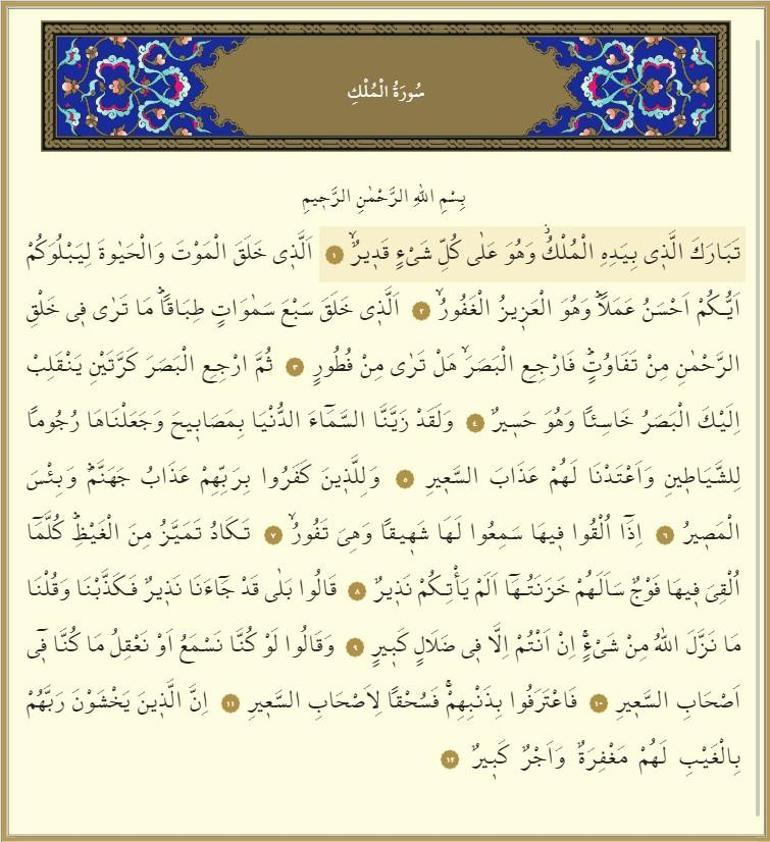 سُورَةُ الْمُلْكِ
بِسْمِ اللهِ الرَّحْمٰنِ الرَّح۪يمِ
تَبَارَكَ الَّذ۪ي بِيَدِهِ الْمُلْكُۘ وَهُوَ عَلٰى كُلِّ شَيْءٍ قَد۪يرٌۙ ﴿١﴾ اَلَّذ۪ي خَلَقَ الْمَوْتَ وَالْحَيٰوةَ لِيَبْلُوَكُمْ
اَيُّكُمْ اَحْسَنُ عَمَلاًۜ وَهُوَ الْعَز۪يزُ الْغَفُورُۙ ﴿٢﴾ اَلَّذ۪ي خَلَقَ سَبْعَ سَمٰوَاتٍ طِبَاقاًۜ مَا تَرٰى ف۪ي خَلْقِ
الرَّحْمٰنِ مِنْ تَفَاوُتٍۜ فَارْجِعِ الْبَصَرَۙ هَلْ تَرٰى مِنْ فُطُورٍ ﴿٣﴾ ثُمَّ ارْجِعِ الْبَصَرَ كَرَّتَيْنِ يَنْقَلِبْ
اِلَيْكَ الْبَصَرُ خَاسِئاً وَهُوَ حَس۪يرٌ ﴿٤﴾ وَلَقَدْ زَيَّنَّا السَّمَٓاءَ الدُّنْيَا بِمَصَاب۪يحَ وَجَعَلْنَاهَا رُجُوماً
لِلشَّيَاط۪ينِ وَاَعْتَدْنَا لَهُمْ عَذَابَ السَّع۪يرِ ﴿٥﴾ وَلِلَّذ۪ينَ كَفَرُوا بِرَبِّهِمْ عَذَابُ جَهَنَّمَۜ وَبِئْسَ
الْمَص۪يرُ ﴿٦﴾ اِذَٓا اُلْقُوا ف۪يهَا سَمِعُوا لَهَا شَه۪يقاً وَهِيَ تَفُورُۙ ﴿٧﴾ تَكَادُ تَمَيَّزُ مِنَ الْغَيْظِۜ كُلَّمَٓا
اُلْقِيَ ف۪يهَا فَوْجٌ سَاَلَهُمْ خَزَنَتُهَٓا اَلَمْ يَأْتِكُمْ نَذ۪يرٌ ﴿٨﴾ قَالُوا بَلٰى قَدْ جَٓاءَنَا نَذ۪يرٌ فَكَذَّبْنَا وَقُلْنَا
مَا نَزَّلَ اللهُ مِنْ شَيْءٍۚ اِنْ اَنْتُمْ اِلَّا ف۪ي ضَلَالٍ كَب۪يرٍ ﴿٩﴾ وَقَالُوا لَوْ كُنَّا نَسْمَعُ اَوْ نَعْقِلُ مَا كُنَّا ف۪ٓي
اَصْحَابِ السَّع۪يرِ ﴿١٠﴾ فَاعْتَرَفُوا بِذَنْبِهِمْۚ فَسُحْقاً لِاَصْحَابِ السَّع۪يرِ ﴿١١﴾ اِنَّ الَّذ۪ينَ يَخْشَوْنَ رَبَّهُمْ
بِالْغَيْبِ لَهُمْ مَغْفِرَةٌ وَاَجْرٌ كَب۪يرٌ ﴿١٢﴾